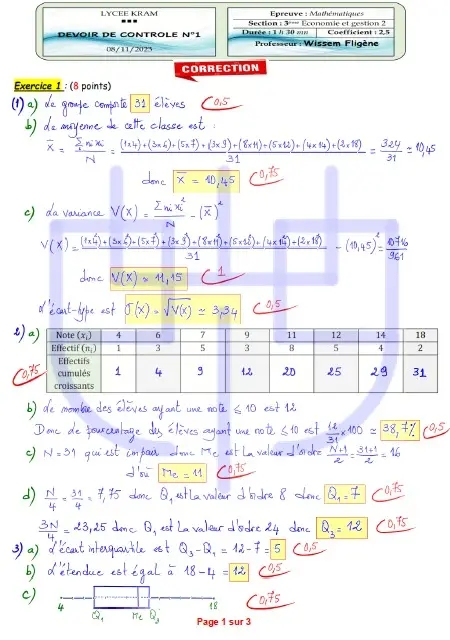 LYCEE KRAM
DEVOIR DE CONTROLE N°1
08/11/2023
Epreuve : Mathématiques
Section : 3ème Economie et gestion 2
Durée : 1 h 30 mn Coefficient : 2,5
Professeur : Wissem Fligène
CORRECTION
Exercice 1 : (8 points)
(1) a) Le groupe comporte 31 élèves 0,5
b) La moyenne de cette classe est :
X̄ = Σ ni xi / N = (1x4)+(3x6)+(5x7)+(3x9)+(8x11)+(5x12)+(4x14)+(2x18) / 31 = 324/31 ≃ 10,45
donc X̄ = 10,45 0,75
c) La variance V(X) = Σ ni xi² / N - (X̄)²
V(X) = (1x4²)+(3x6²)+(5x7²)+(3x9²)+(8x11²)+(5x12²)+(4x14²)+(2x18²) / 31 - (10,45)² = 10716/961
donc V(X) ≃ 11,15 1
L'écart-type est σ(X) = √V(X) ≃ 3,34 0,5
2) a) Note (xi) 4 6 7 9 11 12 14 18
Effectif (ni) 1 3 5 3 8 5 4 2
Effectifs cumulés croissants 1 4 9 12 20 25 29 31
0,75
b) Le nombre des élèves ayant une note ≤ 10 est 12
Donc le pourcentage des élèves ayant une note ≤ 10 est 12/31 x100 ≃ 38,7% 0,5
c) N=31 qui est impair donc Me est la valeur d'ordre N+1/2 = 31+1/2 = 16
d'où Me = 11 0,75
d) N/4 = 31/4 = 7,75 donc Q₁ est la valeur d'ordre 8 donc Q₁ = 7 0,75
3N/4 = 23,25 donc Q₃ est la valeur d'ordre 24 donc Q₃ = 12 0,75
3) a) L'écart interquartile est Q₃ - Q₁ = 12 - 7 = 5 0,5
b) L'étendue est égal à 18 - 4 = 12 0,5
c) 4 Q₁ Me Q₃ 18 0,75
Page 1 sur 3